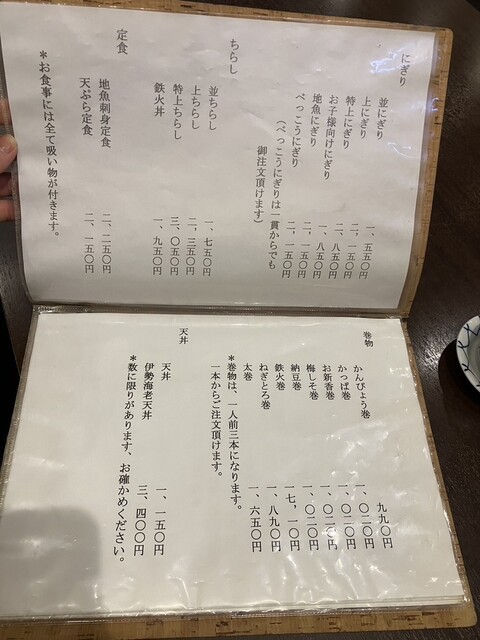 にぎり
並にぎり 一、五五〇円
上にぎり 二、一五〇円
特上にぎり 二、八五〇円
お子様向けにぎり 一、八五〇円
地魚にぎり 二、一五〇円
べっこうにぎり 二、一五〇円
(べっこうにぎりは一貫からでも
御注文頂けます)
ちらし
並ちらし 一、七五〇円
上ちらし 二、三五〇円
特上ちらし 三、〇五〇円
鉄火丼 一、九五〇円
定食
地魚刺身定食 二、二五〇円
天ぷら定食 二、一五〇円
*お食事には全て吸い物が付きます。
巻物
かんぴょう巻 九九〇円
かっぱ巻 一、〇二〇円
お新香巻 一、〇二〇円
梅しそ巻 一、〇二〇円
納豆巻 一、〇二〇円
鉄火巻 一七、一〇円
ねぎとろ巻 一、八九〇円
太巻 一、六五〇円
*巻物は、一人前三本になります。
一本からご注文頂けます。
天丼
天丼 一、一五〇円
伊勢海老天丼 三、四〇〇円
*数に限りがあります、お確かめください。